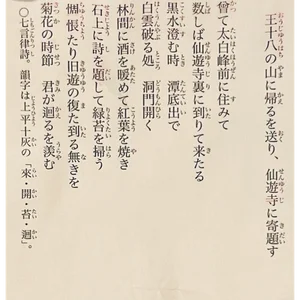 王十八の山に帰るを送り、仙遊寺に寄題す
曾て太白峰前に住みて
数しば仙遊寺裏に到りて来たる
黒水澄む時 潭底出で
白雲破る処 洞門開く
林間に酒を暖めて紅葉を焼き
石上に詩を題して緑苔を掃う
惆悵たり旧遊の復た到る無きを
菊花の時節 君が迴るを羨む
○七言律詩。韻字は上平十灰の「來・開・苔・迴」。